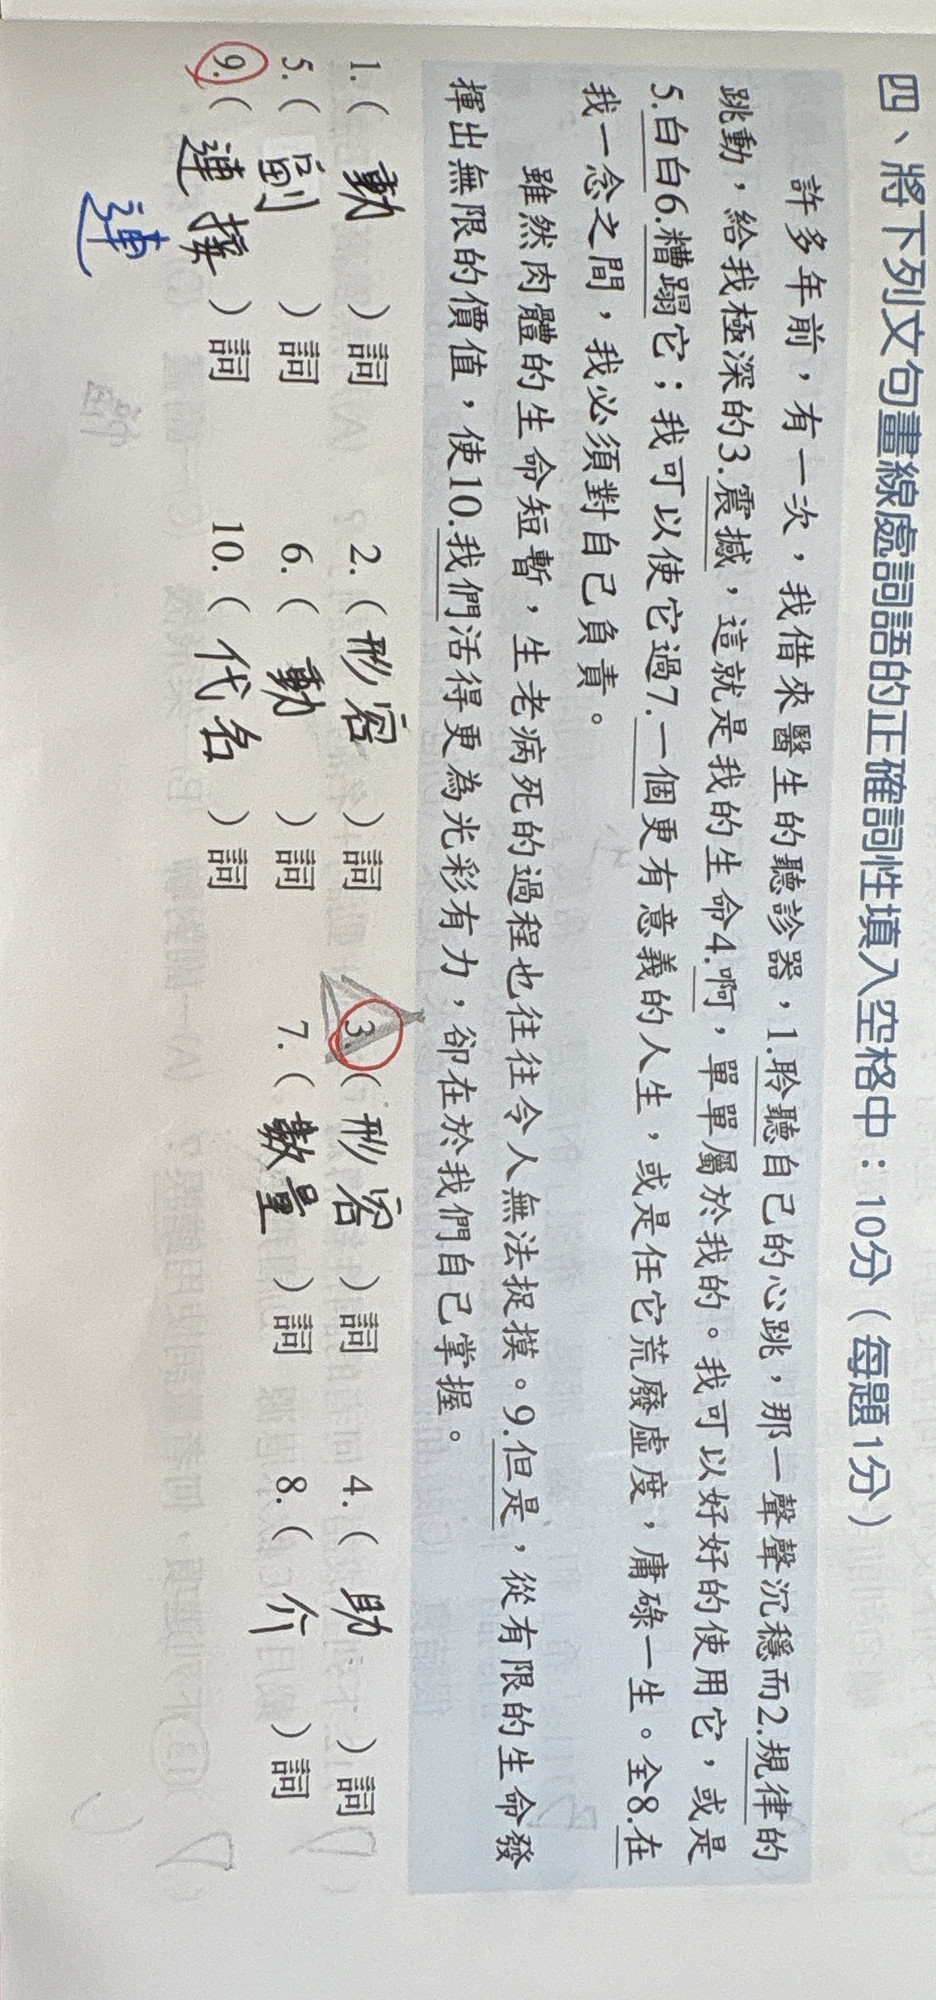 四、將下列文句畫線處詞語的正確詞性填入空格中：10分（每題1分）
許多年前，有一次，我借來醫生的聽診器，1.聆聽自己的心跳，那一聲聲沉穩而2.規律的
跳動，給我極深的3.震撼，這就是我的生命4.啊，單單屬於我的。我可以好好的使用它，或是
5.白白6.糟蹋它；我可以使它過7.一個更有意義的人生，或是任它荒廢虛度，庸碌一生。全8.在
我一念之間，我必須對自己負責。
雖然肉體的生命短暫，生老病死的過程也往往令人無法捉摸。9.但是，從有限的生命發
揮出無限的價值，使10.我們活得更為光彩有力，卻在於我們自己掌握。
1.（ 動 ）詞 2.（ 形容 ）詞 3.（ 形容 ）詞 4.（ 助 ）詞
5.（ 副 ）詞 6.（ 動 ）詞 7.（ 數量 ）詞 8.（ 介 ）詞
9.（ 連接 ）詞 10.（ 代名 ）詞
連